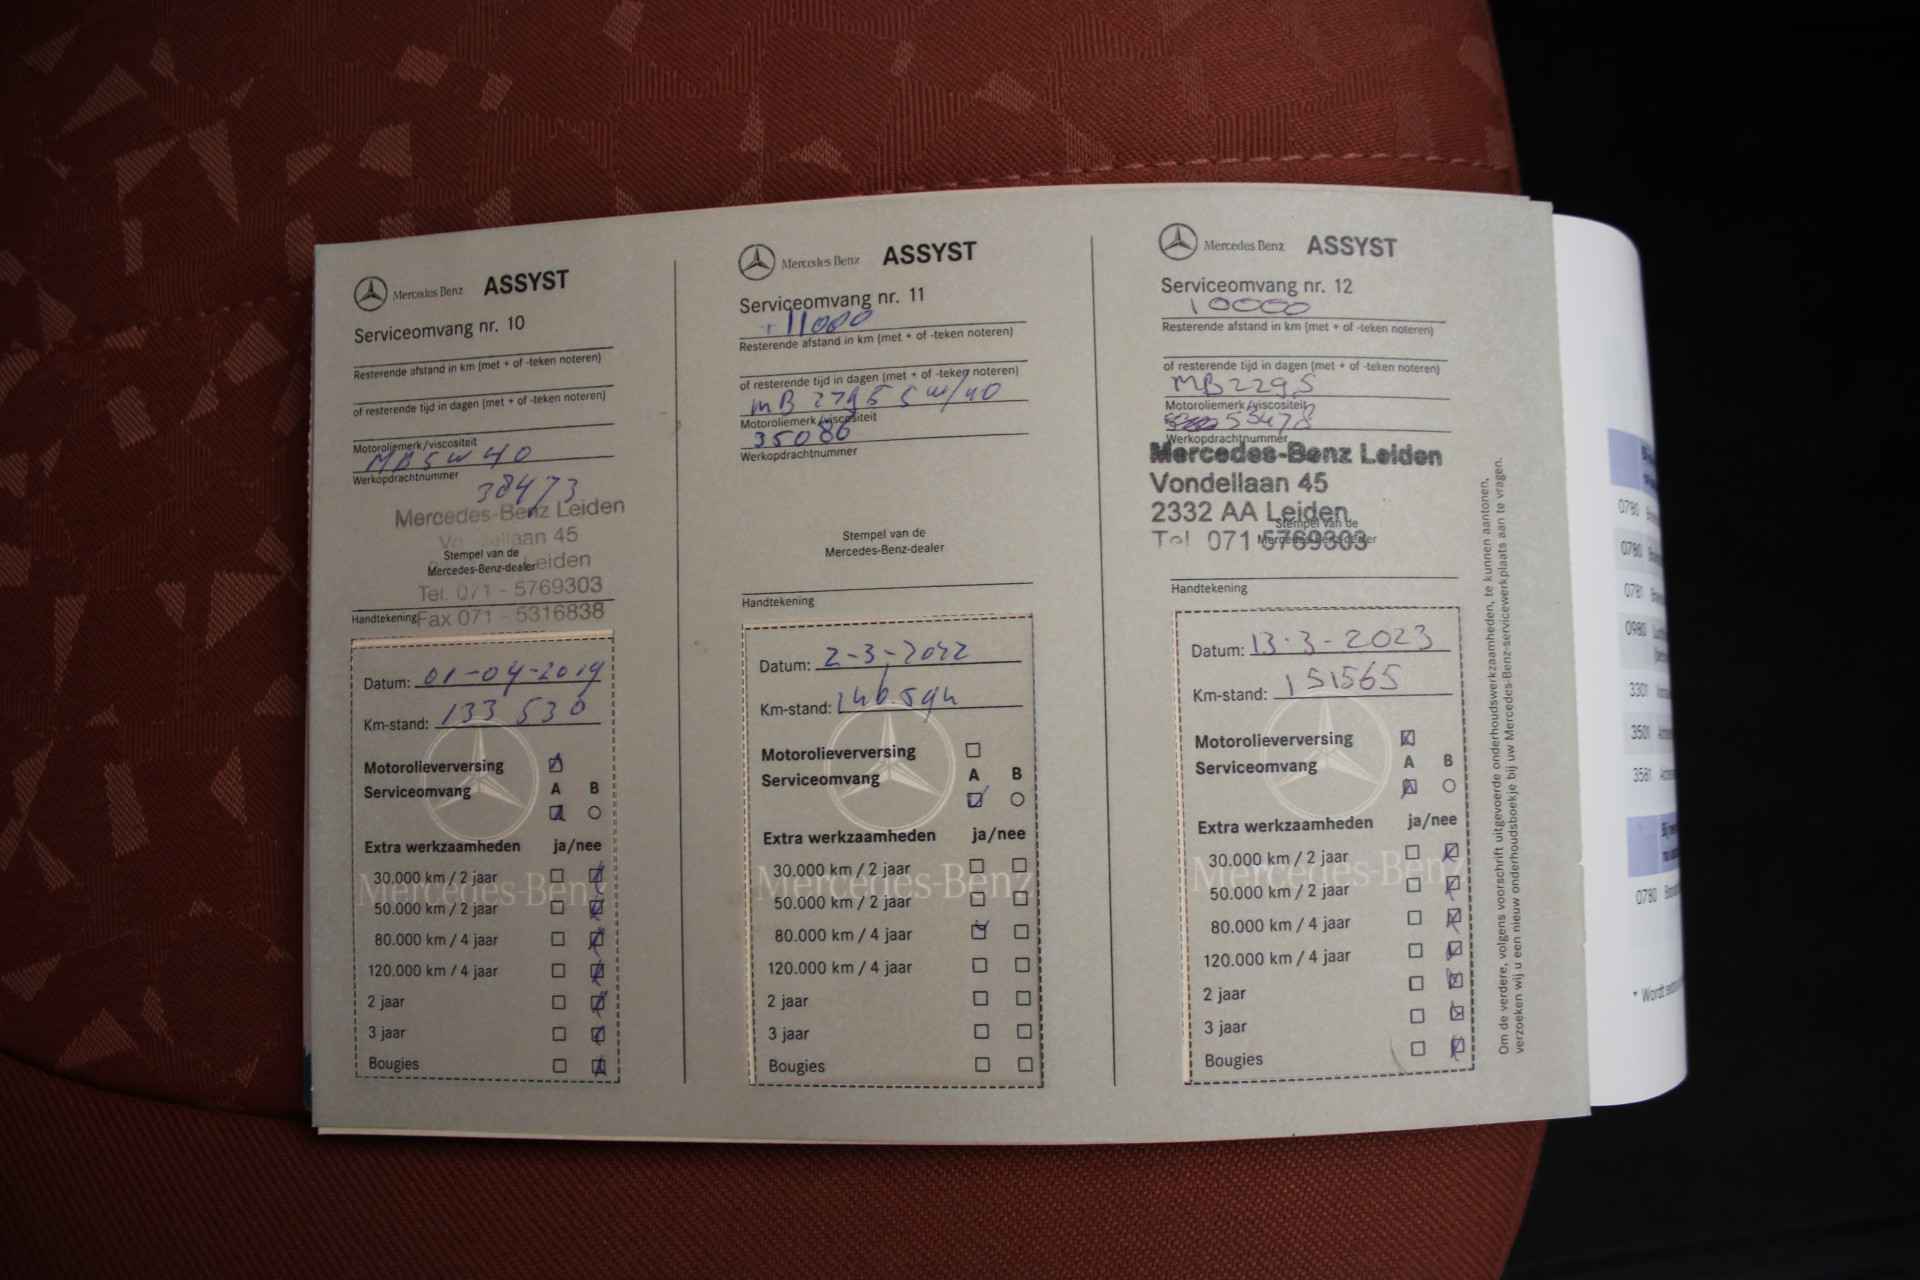 Mercedes Benz ASSYST
Serviceomvang nr. 10
Resterende afstand in km (met + of -teken noteren)
of resterende tijd in dagen (met + of -teken noteren)
Motoroliemerk/viscositeit
MB 5W40
Werkopdrachtnummer
38473
Mercedes-Benz Leiden
45
Stempel van de
Mercedes-Benz-dealer
Leiden
Tel. 071 - 5769303
Handtekening
Fax 071 - 5316838
Datum: 01-04-2019
Km-stand: 133 530
Motorolieverversing
Serviceomvang A B
Extra werkzaamheden ja/nee
30.000 km / 2 jaar
50.000 km / 2 jaar
80.000 km / 4 jaar
120.000 km / 4 jaar
2 jaar
3 jaar
Bougies
Mercedes-Benz
Mercedes Benz ASSYST
Serviceomvang nr. 11
+11000
Resterende afstand in km (met + of -teken noteren)
of resterende tijd in dagen (met + of -teken noteren)
MB 5W/40
Motoroliemerk/viscositeit
35086
Werkopdrachtnummer
Stempel van de
Mercedes-Benz-dealer
Handtekening
Datum: 2-3-2022
Km-stand: 146.594
Motorolieverversing
Serviceomvang A B
Extra werkzaamheden ja/nee
30.000 km / 2 jaar
50.000 km / 2 jaar
80.000 km / 4 jaar
120.000 km / 4 jaar
2 jaar
3 jaar
Bougies
Mercedes-Benz
Mercedes Benz ASSYST
Serviceomvang nr. 12
10000
Resterende afstand in km (met + of -teken noteren)
of resterende tijd in dagen (met + of -teken noteren)
MB 2295
Motoroliemerk/viscositeit
53478
Werkopdrachtnummer
Mercedes-Benz Leiden
Vondellaan 45
2332 AA Leiden
Stempel van de
Tel. 071 5769303
Mercedes-Benz-dealer
Handtekening
Datum: 13-3-2023
Km-stand: 151565
Motorolieverversing
Serviceomvang A B
Extra werkzaamheden ja/nee
30.000 km / 2 jaar
50.000 km / 2 jaar
80.000 km / 4 jaar
120.000 km / 4 jaar
2 jaar
3 jaar
Bougies
Mercedes-Benz
Om de verdere, volgens voorschrift uitgevoerde onderhoudswerkzaamheden, te kunnen aantonen,
verzoeken wij u een nieuw onderhoudsboekje bij uw Mercedes-Benz-servicewerkplaats aan te vragen.
0780
0780
0781
0980
3301
3501
3581
0780
* Wordt